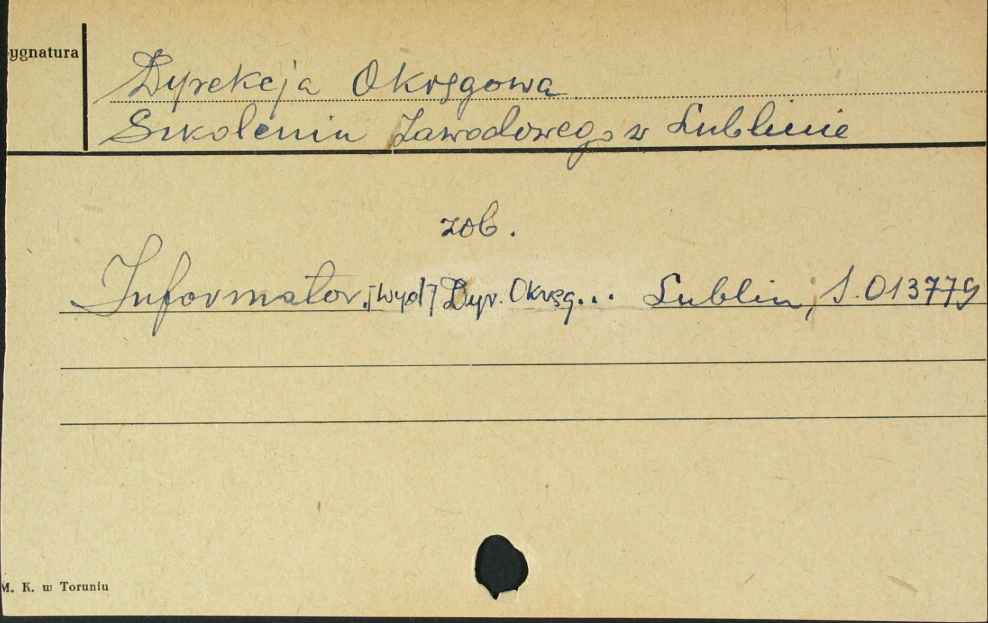 ygnatura
Dyrekcja Okręgowa
Szkolenia Zawodowego w Lublinie
zob.
Informator. [wyd] Dyr. Okręg... Lublin, S.013779
M. K. w Toruniu